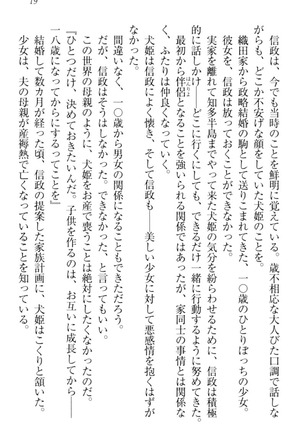 19
信政は、今でも当時のことを鮮明に覚えている。歳不相応な大人びた口調で話しな
がらも、どこか不安げな顔をしていた犬姫のことを。
織田家から政略結婚の駒として送りこまれてきた、一〇歳のひとりぼっちの少女。
彼女を、信政は放っておくことができなかった。
実家を離れて知多半島までやって来た犬姫の気分を紛らわせるために、信政は積極
的に話しかけ――どこに行くにしても、できるだけ一緒に行動するように努めてきた。
最初から伴侶となることを強いられる関係ではあったが、家同士の事情とは関係な
く、ふたりは仲良くなっていく。
犬姫は信政によく懐き、そして信政も――美しい少女に対して悪感情を抱くはずが
なかった。
間違いなく、一〇歳から男女の関係になることもできただろう。
だが、信政はそうはしなかった。できなかった、と言ってもいい。
この世界の母親のように、犬姫をお産で喪うことは絶対にしたくなかったのだ。
『ひとつだけ、決めておきたいんだ。子供を作るのは、お互いに成長してから――
一八歳になってからにするってことを』
結婚して数カ月が経った頃、信政の提案した家族計画に、犬姫はこくりと頷いた。
少女は、夫の母親が産褥熱で亡くなっていることを知っている。